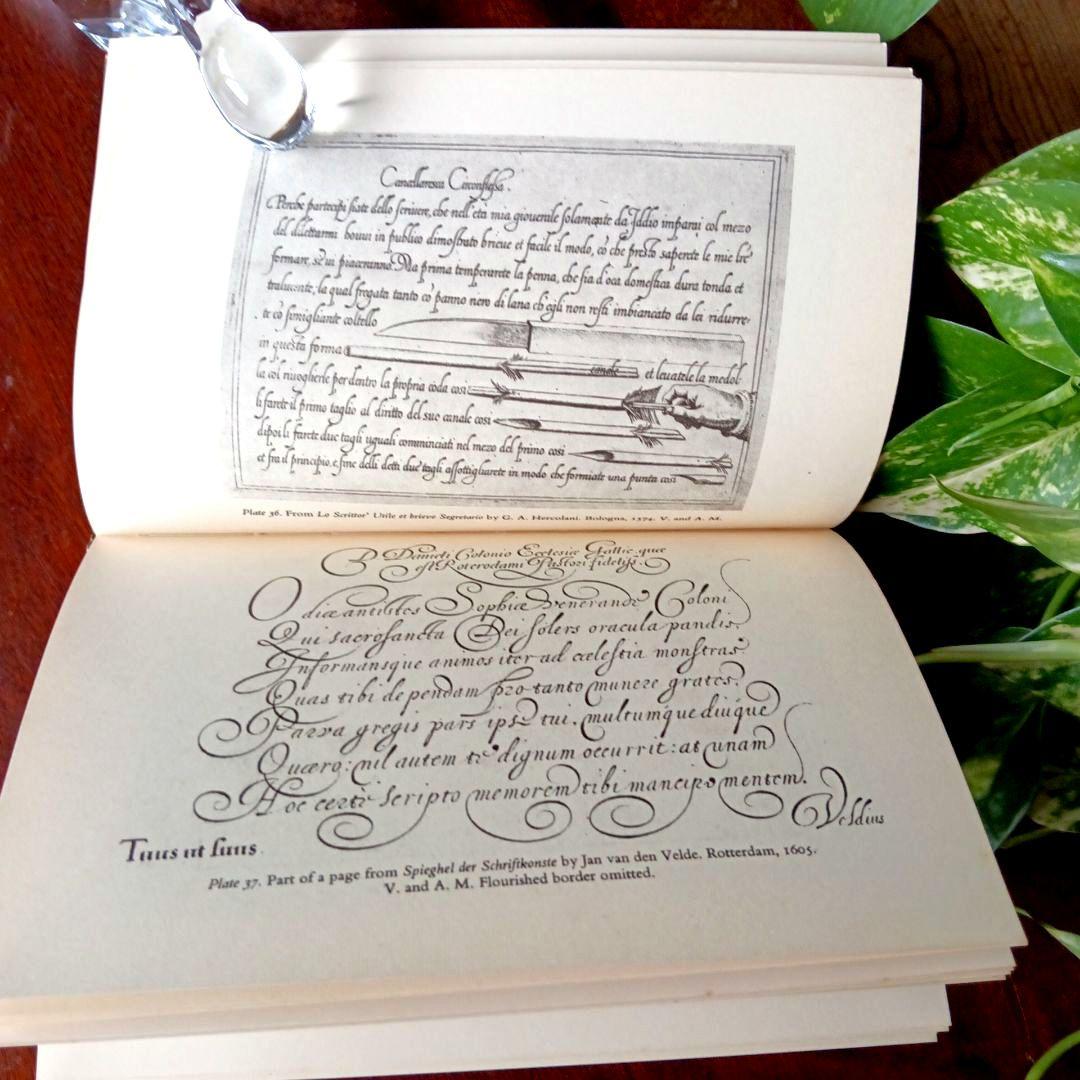 Cancellaresca Circonflessa.
Perche partecipi siate dello scriuere, che nell'eta mia giouenile solamente da Iddio imparai col mezo
del dilettarmi houui in publico dimostrato brieue et facile il modo, cō che presto saperete le mie lr̄e
formare, se ui piaceranno. Ma prima temperarete la penna, che sia d'oca domestica dura tonda et
tralucente, la qual fregata tanto cō panno nero di lana ch'egli non resti imbiancato da lei ridurre-
te cō simigliante coltello
in questa forma canale et leuatele la medol
la col riuoglierle per dentro la propria coda cosi
li farete il primo taglio al diritto del suo canale cosi
dipoi li farete due tagli uguali comminciati nel mezo del primo cosi
et fra il principio, e fine delli detti due tagli assottigliarete in modo che formiate una punta cosi
Plate 36. From Lo Scrittor' Utile et brieve Segretario by G. A. Hercolani. Bologna, 1574. V. and A. M.
D. Danieli Colonio Ecclesiæ Gallic. quæ
est Roterodami Pastori fideliss.
O diæ antistes Sophiæ Venerande Coloni
Qui sacrosancta Dei solers oracula pandis,
Informansque animos iter ad cælestia monstras
Quas tibi dependam pro tanto munere grates?
Parva gregis pars ipse tui, multumque diuque
Quæro: nil autem te dignum occurrit: at unam
Hoc certe scripto memorem tibi mancipo mentem.
Tuus ut suus Veldius
Plate 37. Part of a page from Spieghel der Schrijfkonste by Jan van den Velde. Rotterdam, 1605.
V. and A. M. Flourished border omitted.